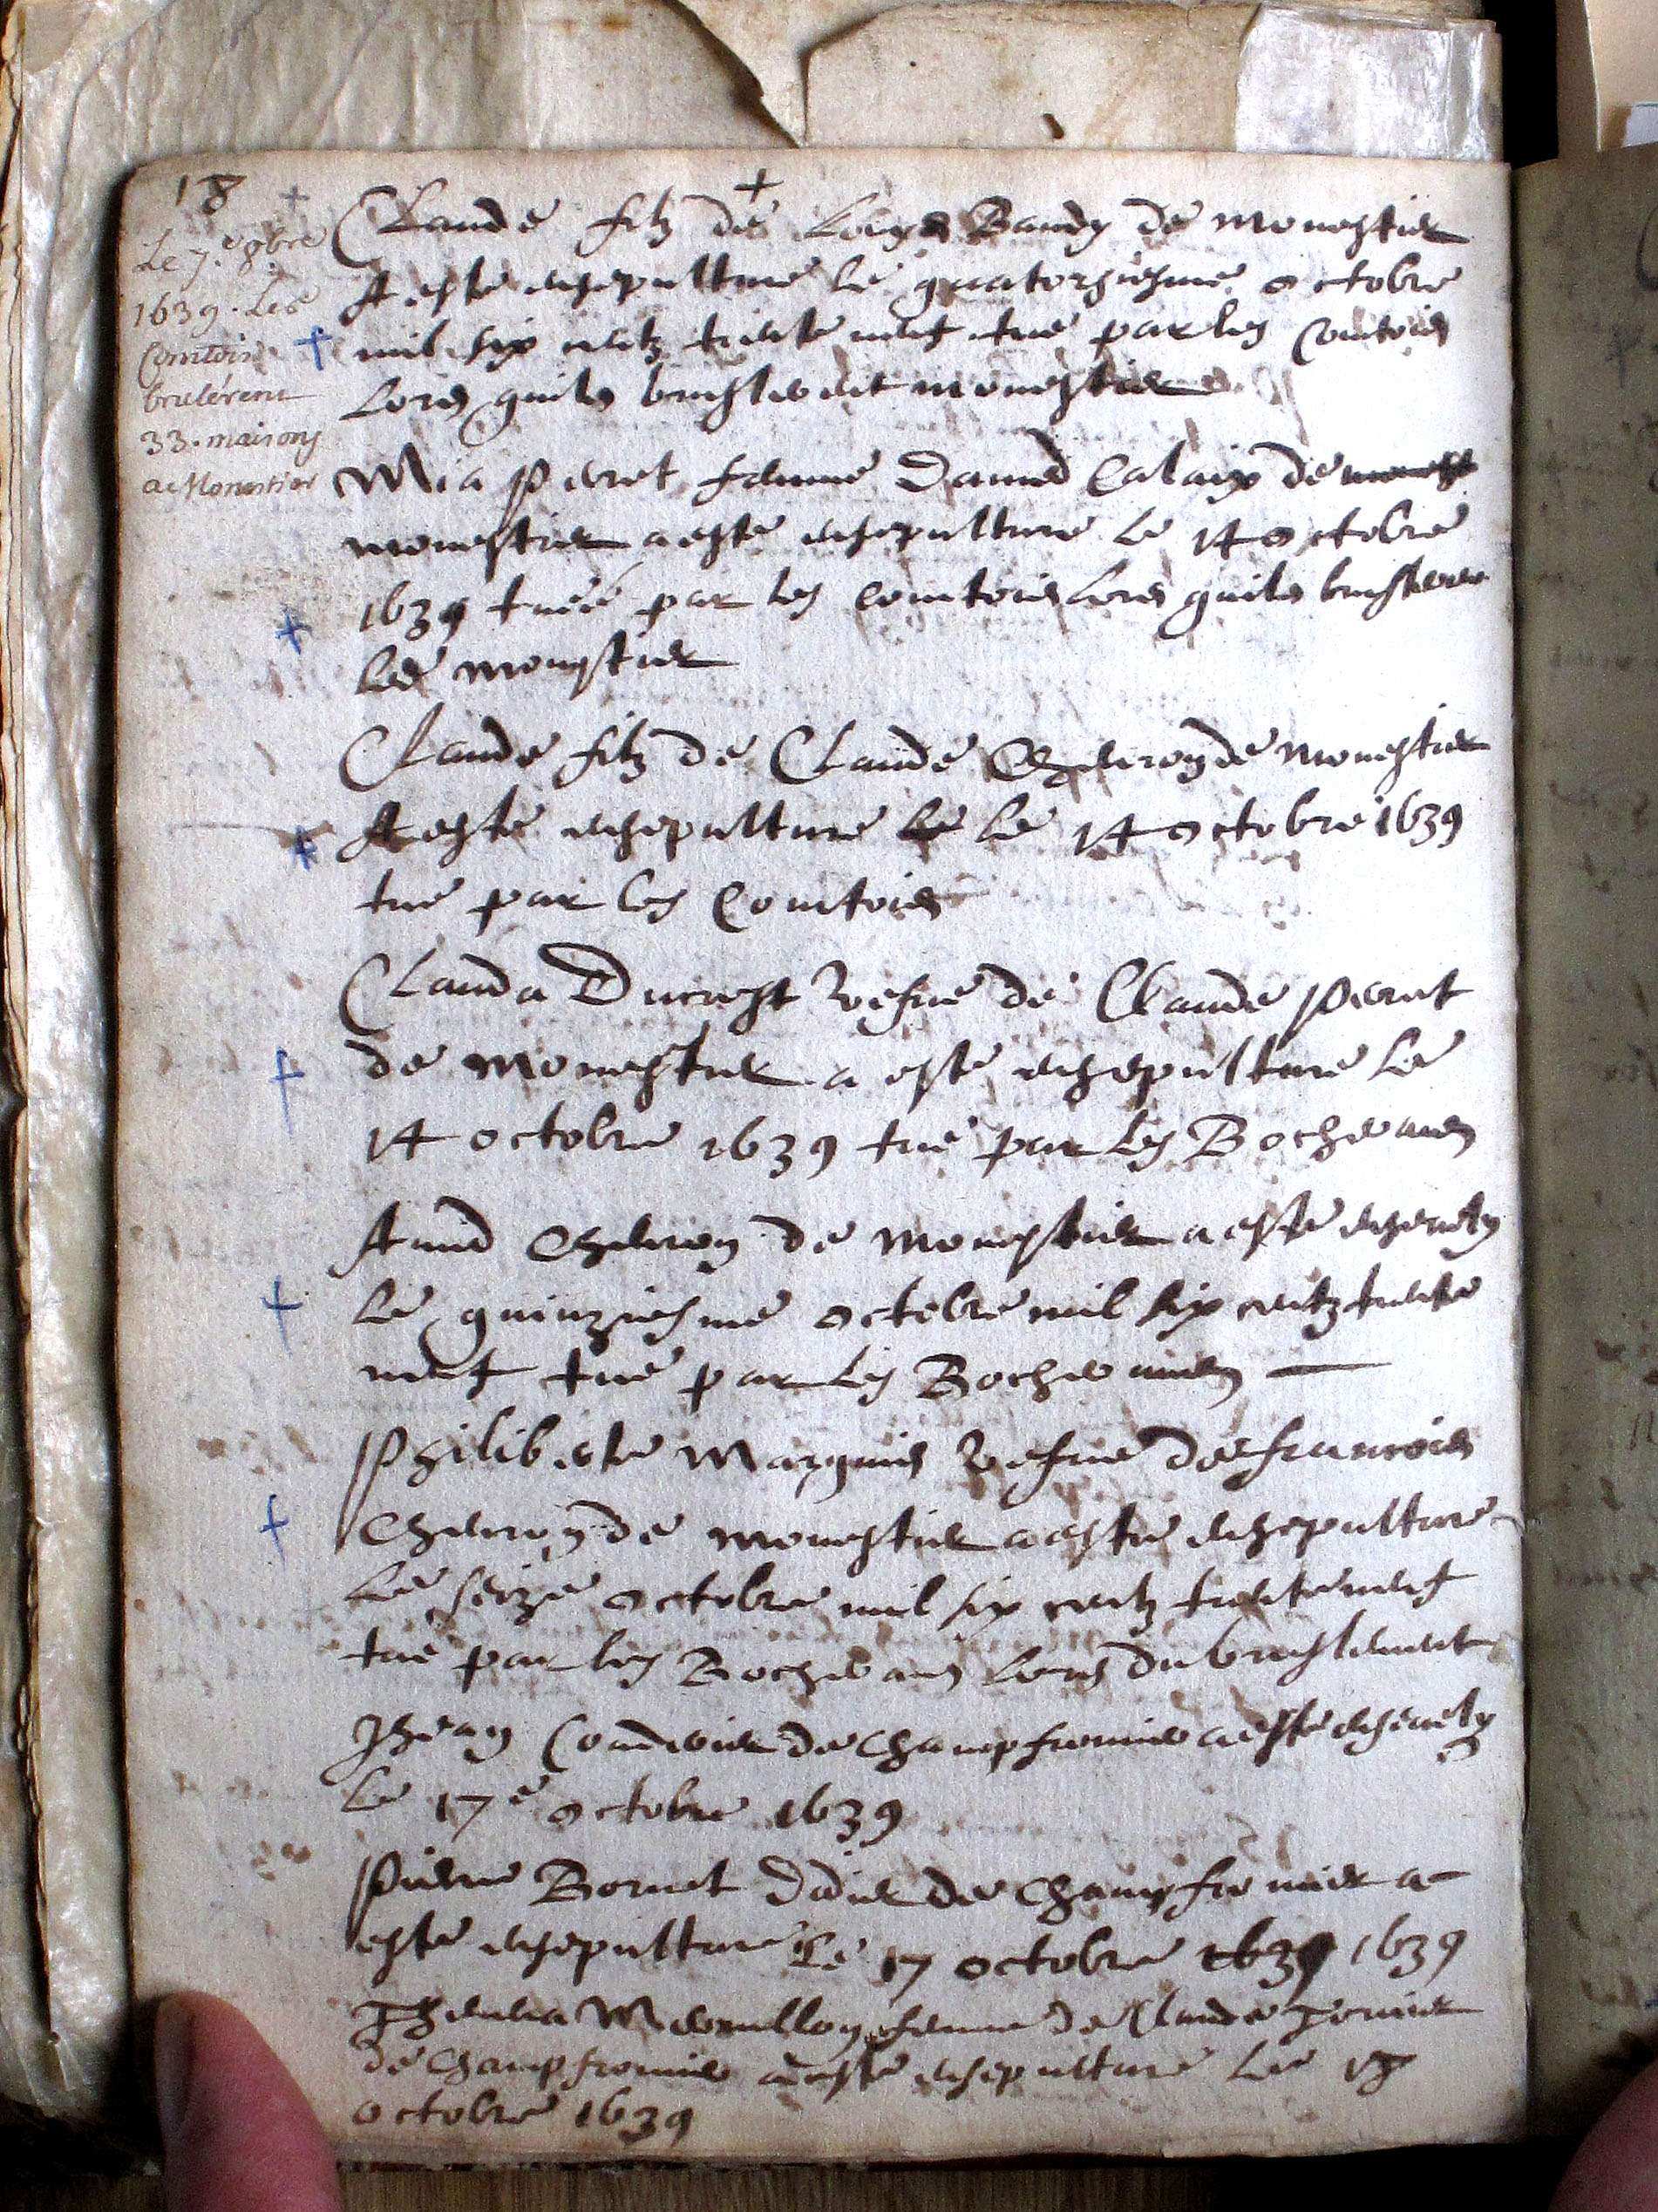 18
Le 7.e 8bre
1639. Les
Comtois
brulérent
33. maisons
a Monestier
Claude filz de Loys Baudy de monestier
A este ensepulture le quatorziesme octobre
mil six centz trente neuf tue par les Comtois
Lors quils bruslerent monestier
Mia Perret femme Damed Calaix de monest
monestier a este ensepulture le 14 octobre
1639 tuée par les Comtois lors quils bruslere
Le monestier
Claude filz de Claude Chevron de monestier
A este ensepulture le le 14 octobre 1639
tue par les Comtois
Clauda Ducrest vefve de Claude Perret
de Monestier a este ensepulture le
14 octobre 1639 tue par les Bocherans
Amed Chevron de monestier a este ensevely
le quinziesme octobre mil six centz trente
neuf tue par les Bocherans
Philiberte Marquis vefve de francois
Chevron de monestier a este ensepulture
Le seize octobre mil six centz trente neuf
tue par les Bocherans lors du bruslement
Jhean de Champfromier a este ensevely
le 17e octobre 1639
Pierre Bornet Didier de Champfromier a
este ensepulture le 17 octobre 1639 1639
femme de Claude
de Champfromier a este ensepulture le 18
octobre 1639